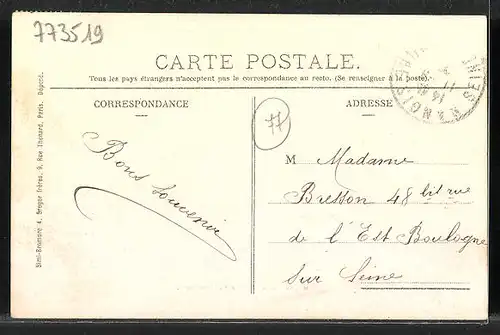 773519
CARTE POSTALE.
Tous les pays étrangers n'acceptent pas le correspondance au recto. (Se renseigner à la poste).
CORRESPONDANCE
ADRESSE
77
Bons Souvenir
M Madame
Bresson 48 bis rue
de l'Est Boulogne
Sur Seine
Simi-Bromure A. Breger frères, 9, Rue Thénard, Paris. Déposé.